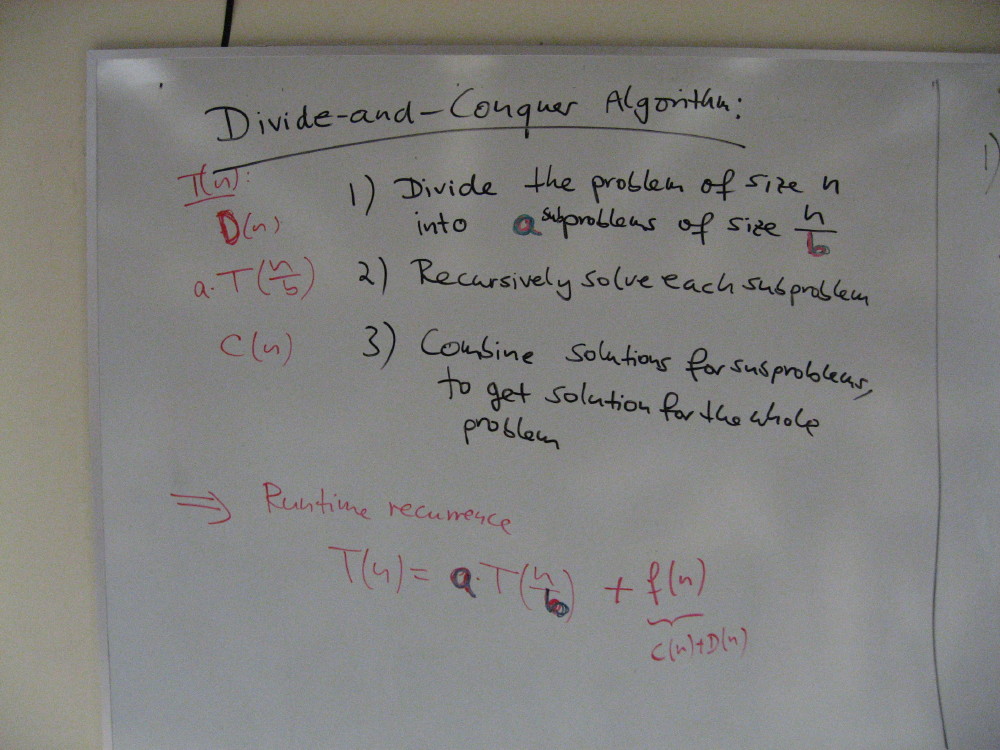 Divide-and-Conquer Algorithm:
T(n):
1) Divide the problem of size n
D(n) into a subproblems of size n/b
a·T(n/b) 2) Recursively solve each subproblem
C(n) 3) Combine solutions for subproblems,
to get solution for the whole
problem
⇒ Runtime recurrence
T(n) = a·T(n/b) + f(n)
C(n)+D(n)
1)